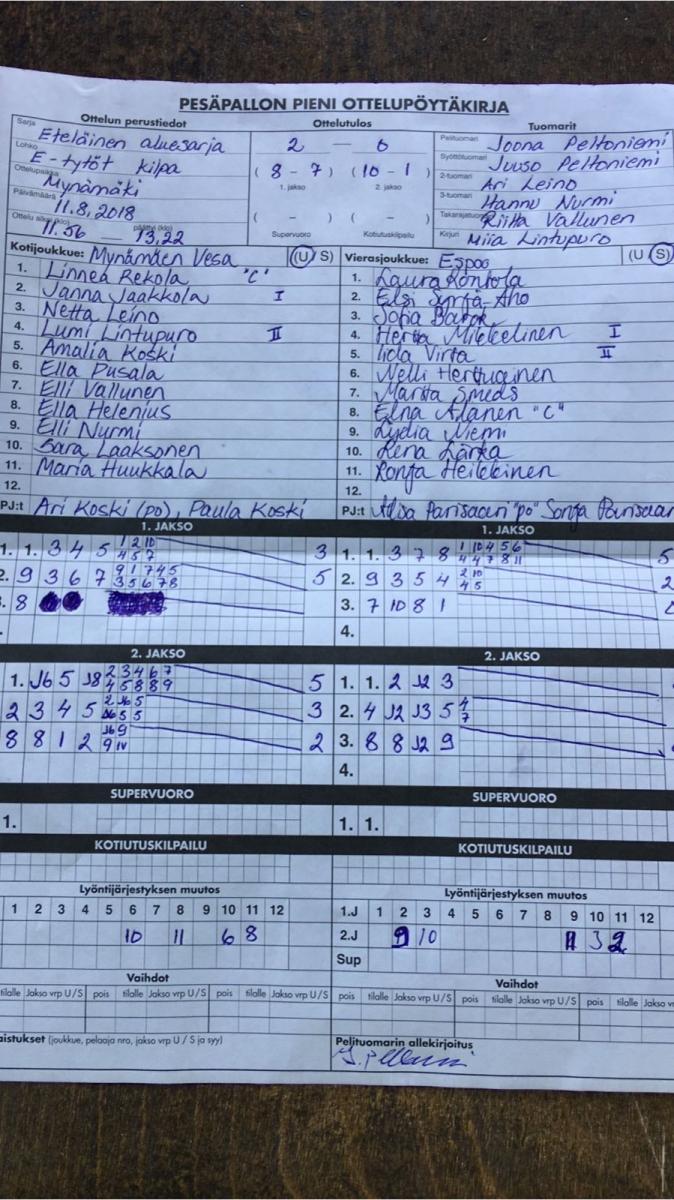 PESÄPALLON PIENI OTTELUPÖYTÄKIRJA
Ottelun perustiedot Ottelutulos Tuomarit
Sarja Eteläinen aluesarja 2 – 0 Pelituomari Joona Peltoniemi
Lohko E-tytöt kilpa ( 8 - 7 ) ( 10 - 1 ) Syöttötuomari Juuso Peltoniemi
Ottelupaikka Mynämäki 1. jakso 2. jakso 2-tuomari Ari Leino
Päivämäärä 11.8.2018 3-tuomari Hannu Nurmi
Ottelu alkoi (klo) 11.56 päättyi (klo) 13.22 ( - ) ( - ) Takarajatuomari Riitta Vallunen
Supervuoro Kotiutuskilpailu Kirjuri Miia Lintupuro
Kotijoukkue: Mynämäen Vesa (U S) Vierasjoukkue: Espoo (U S)
1. Linnea Rekola "C" 1. Laura Kontola
2. Janna Jaakkola I 2. Elsi Syrjä-Aho
3. Netta Leino 3. Sofia
4. Lumi Lintupuro II 4. Hertta Mikkelinen I
5. Amalia Koski 5. Iida Virta II
6. Ella Pusala 6. Nelli Herttuainen
7. Elli Vallunen 7. Martta Smeds
8. Ella Helenius 8. Elna Alanen "C"
9. Elli Nurmi 9. Lydia Niemi
10. Sara Laaksonen 10. Lärka
11. Maria Huukkala 11. Ronja Heikkinen
12. 12.
PJ:t Ari Koski (po), Paula Koski PJ:t Parisaari "po" Sonja Parisaari
1. JAKSO 1. JAKSO
1. 1. 3 4 5 1 2 10 3 1. 1. 3 7 8 1 10 4 5 6 5
4 5 7 4 4 7 8 11
2. 9 3 6 7 9 1 7 4 5 5 2. 9 3 5 4 2 10 2
3 5 6 7 8 4 5
3. 8 3. 7 10 8 1
4.
2. JAKSO 2. JAKSO
1. J6 5 J8 2 3 4 6 7 5 1. 1. 2 J2 3
4 5 8 8 9
2 3 4 5 2 J6 5 3 2. 4 J2 J3 5 4
J6 5 5 7
8 8 1 2 J6 9 2 3. 8 8 J2 9
9 IV
4.
SUPERVUORO SUPERVUORO
1. 1. 1.
KOTIUTUSKILPAILU KOTIUTUSKILPAILU
Lyöntijärjestyksen muutos Lyöntijärjestyksen muutos
1 2 3 4 5 6 7 8 9 10 11 12 1.J 1 2 3 4 5 6 7 8 9 10 11 12
10 11 6 8 2.J 9 10 11 3 2
Sup
Vaihdot Vaihdot
tilalle Jakso vrp U / S pois tilalle Jakso vrp U / S pois tilalle Jakso vrp U / S pois tilalle Jakso vrp U / S pois tilalle Jakso vrp U / S pois tilalle Jakso
(joukkue, pelaaja nro, jakso vrp U / S ja syy) Pelituomarin allekirjoitus